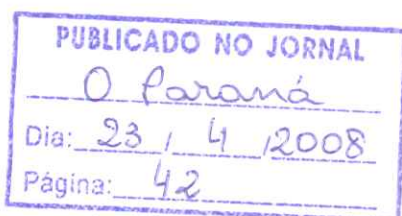 PUBLICADO NO JORNAL
O Paraná
Dia: 23 / 4 / 2008
Página: 42